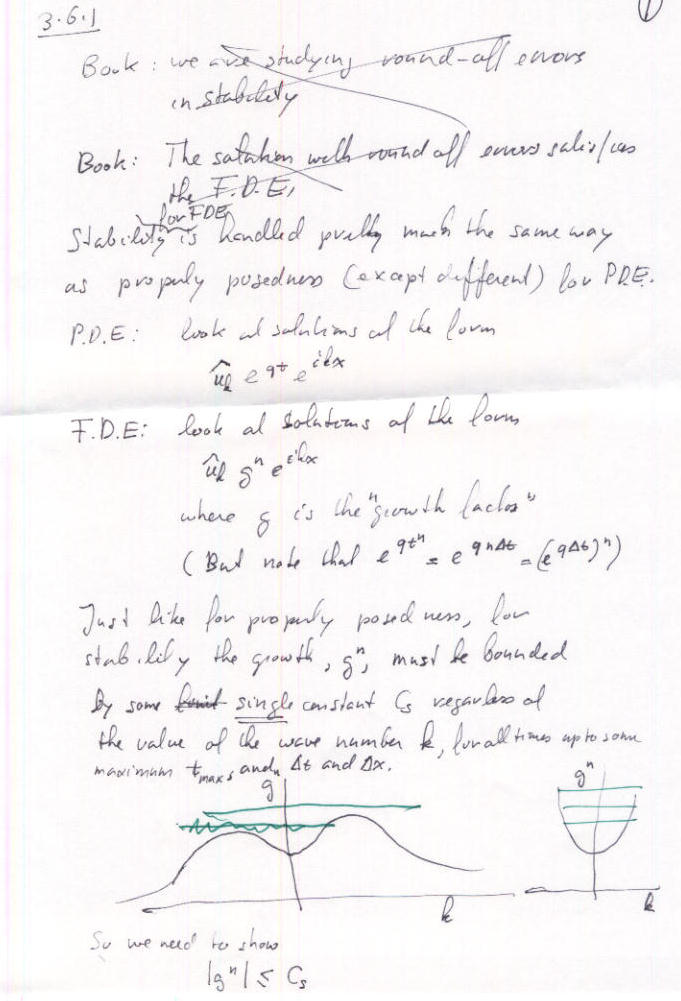 3.6.1
1
Book: we are studying round-off errors
in stability
Book: The solution with round off errors satisfies
the F.D.E,
for FDE
Stability is handled pretty much the same way
as properly posedness (except different) for P.D.E.
P.D.E: look at solutions of the form
û_k e^{qt} e^{ikx}
F.D.E: look at solutions of the form
û_k g^n e^{ikx}
where g is the "growth factor"
(But note that e^{qt^n} = e^{qnΔt} = (e^{qΔt})^n)
Just like for properly posedness, for
stability the growth, g^n, must be bounded
by some single constant C_s regardless of
the value of the wave number k, for all times up to some
maximum t_max, and Δt and Δx.
g
g^n
k
k
So we need to show
|g^n| ≤ C_s